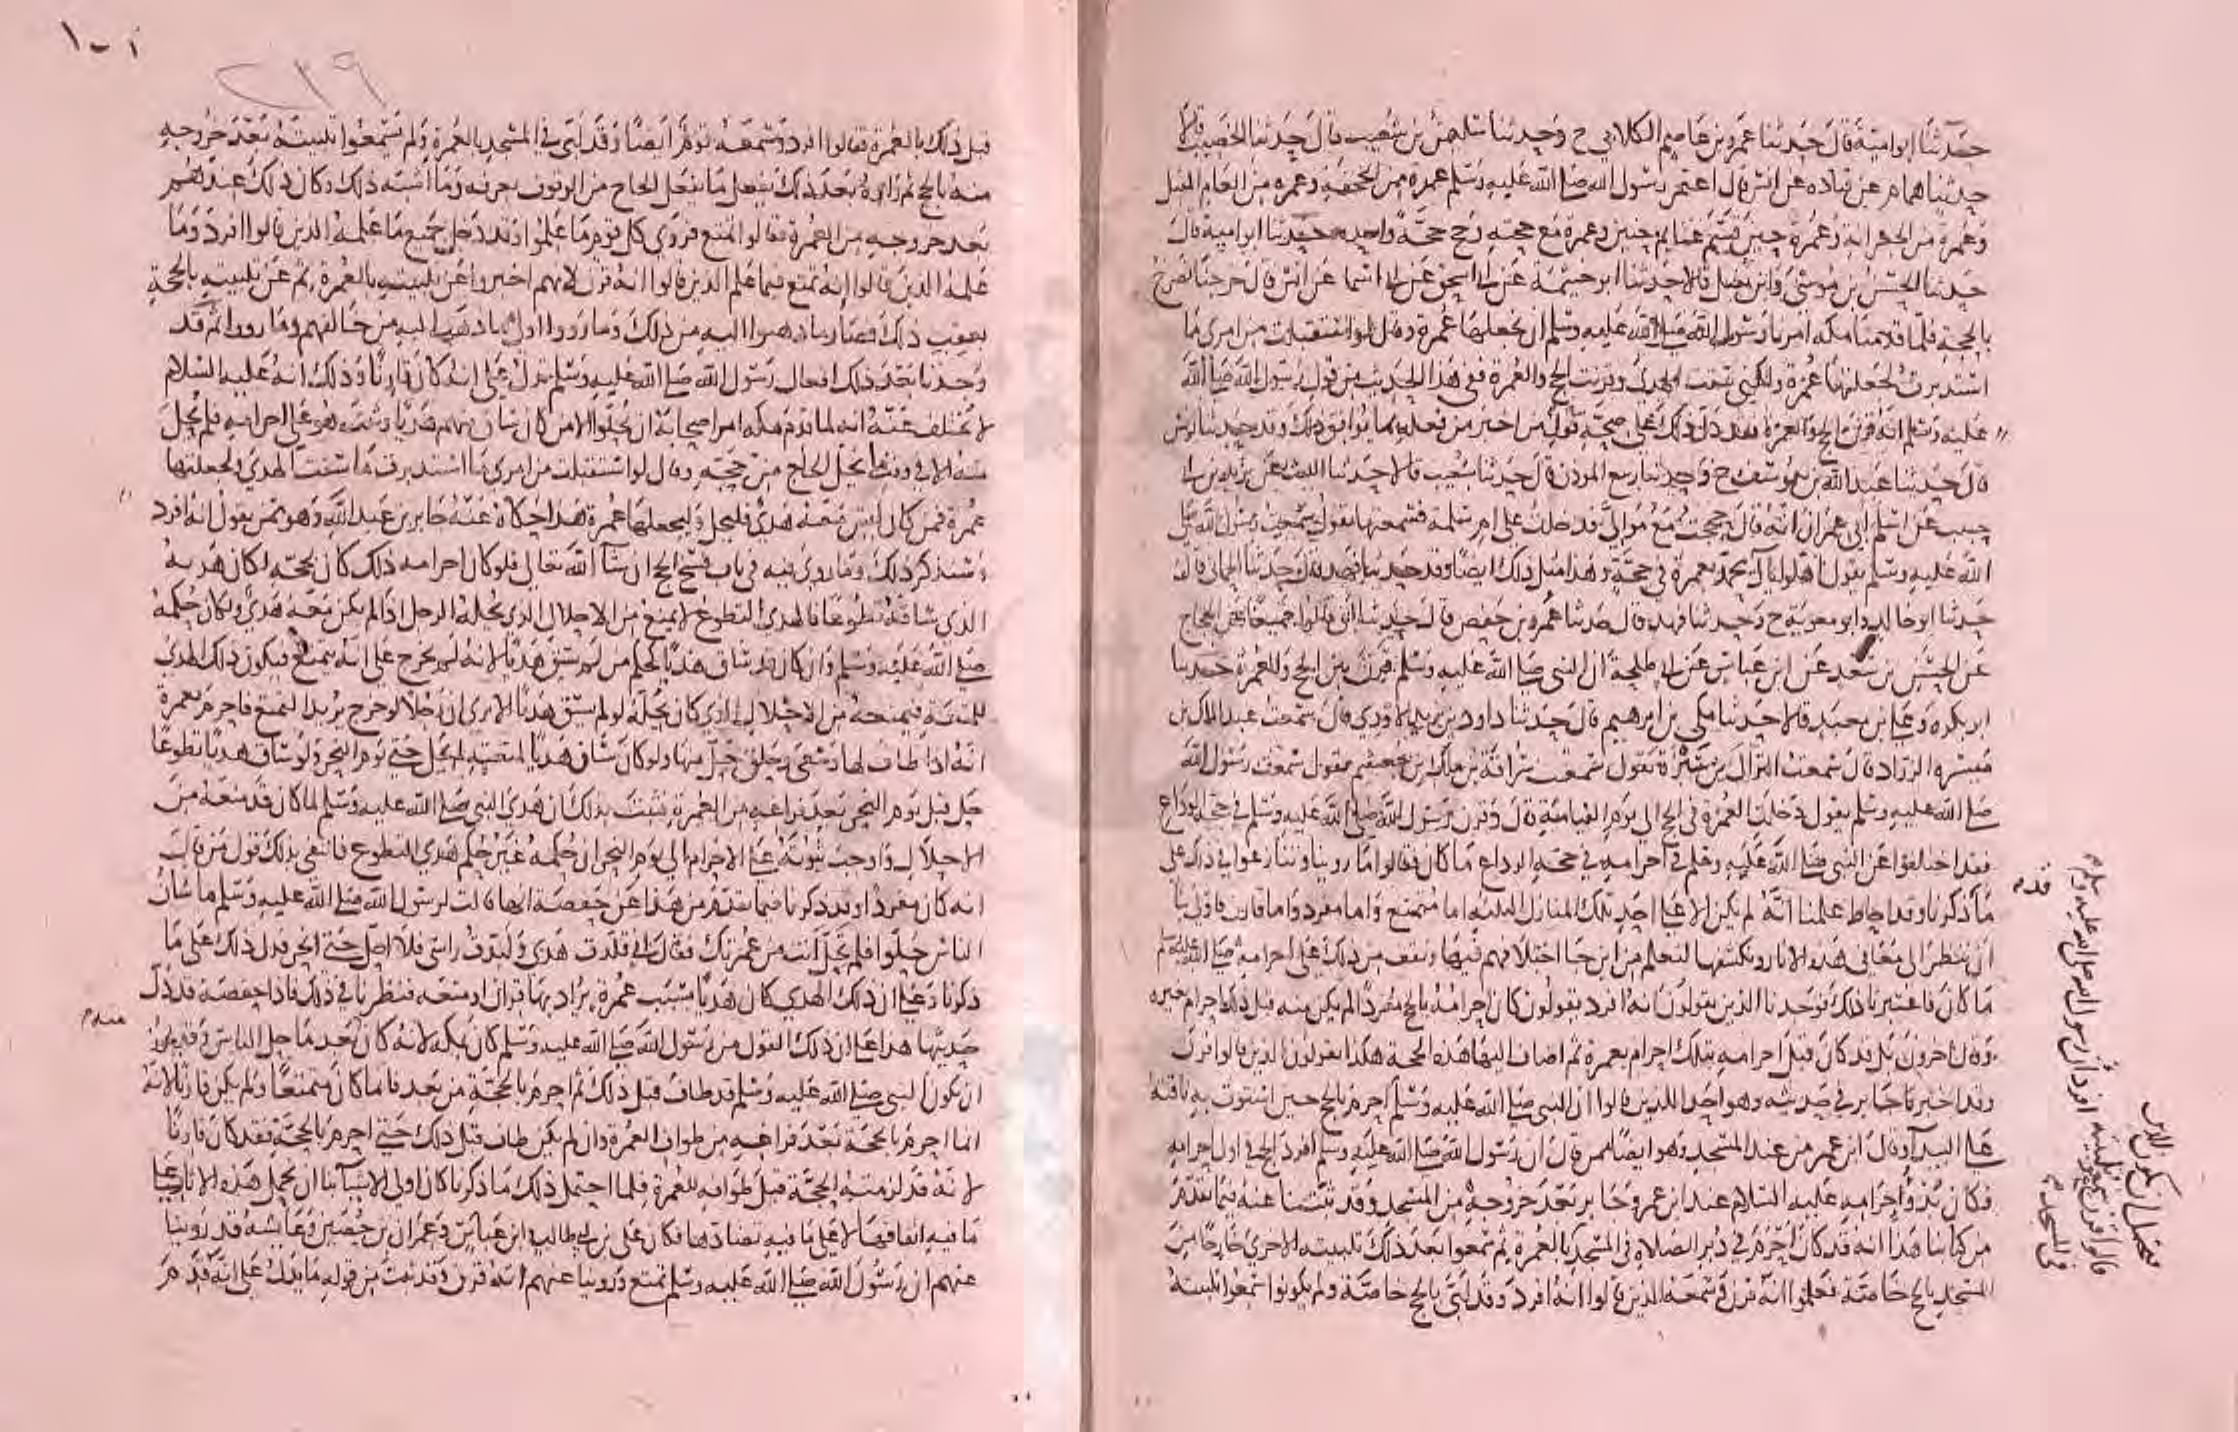 حدثنا ابو امية قال حدثنا عمرو بن عاصم الكلابي ح وحدثنا سليمن بن شعيب قال حدثنا الخصيب قالا
حدثنا همام عن قتاده عن انس قال اعتمر رسول الله صلى الله عليه وسلم عمرة من الجحفة وعمره من العام المقبل
وعمرة من الجعرانة وعمرة حيث قسم غنايم حنين وعمرة مع حجته وحج حجة واحده حدثنا ابو امية قال
حدثنا الحسن بن موسى وابن نفيل قالا حدثنا ابو خيثمة عن ابي اسحق عن ابي اسما عن انس قال خرجنا نصرخ
بالحجة فلما قدمنا مكه امرنا رسول الله صلى الله عليه وسلم ان نجعلها عمرة وقال لو استقبلت من امري ما
استدبرت لجعلتها عمرة ولكني سقت الهدي وقرنت الحج والعمرة ففي هذا الحديث من قول رسول الله صلى الله
عليه وسلم انه قرن الحج والعمرة فقد دل ذلك على صحة قول من اخبر من فعله بما يوافق ذلك وقد حدثنا يونس
قال حدثنا عبد الله بن يوسف ح وحدثنا ربيع الموذن قال حدثنا شعيب قالا حدثنا الليث عن يزيد بن ابي
حبيب عن اسلم ابي عمران انه قال حججت مع موالي فدخلت على ام سلمة فسمعتها تقول سمعت رسول الله صلى
الله عليه وسلم يقول اهلوا يا آل محمد بعمرة في حجة وهذا مثل ذلك ايضا وقد حدثنا فهد قال حدثنا الحماني قال
حدثنا ابو خالد وابو معوية ح وحدثنا فهد قال حدثنا عمرو بن حفص قال حدثنا ابي قالوا جميعا عن الحجاج
عن الحسن بن سعد عن ابن عباس عن ابي طلحة ان النبي صلى الله عليه وسلم قرن بين الحج والعمرة حدثنا
ابو بكره وعلي بن معبد قالا حدثنا مكي بن ابرهيم قال حدثنا داود بن يزيد الاودي قال سمعت عبد الملك بن
ميسره الزراد قال سمعت النزال بن سبرة يقول سمعت سراقة بن مالك بن جعشم يقول سمعت رسول الله
صلى الله عليه وسلم يقول دخلت العمرة في الحج الى يوم القيامة قال وقرن رسول الله صلى الله عليه وسلم في حجة الوداع
فقد اختلفوا عن النبي صلى الله عليه وسلم في احرامه في حجة الوداع ما كان فقالوا ما روينا وتنازعوا في ذلك على
ما ذكرنا وقد احاط علمنا انه لم يكن الا على احد تلك المنازل الثلثه اما متمتع واما مفرد واما قارن فاولى بنا
ان ننظر الى معاني هذه الاثار ونكشفها لنعلم من اين جا اختلافهم فيها ونقف من ذلك على احرامه صلى الله عليه وسلم
ما كان فاعتبرنا ذلك فوجدنا الذين يقولون انه افرد يقولون كان احرامه بالحج مفردا لم يكن منه قبل ذلك احرام بغيره
وقال اخرون بل قد كان قبل احرامه بتلك احرام بعمرة ثم اضاف اليها هذه الحجة هكذا يقولون الذين قالوا قرن
وقد اخبرنا جابر في حديثه وهو احد الذين قالوا ان النبي صلى الله عليه وسلم احرم بالحج حين استوت به ناقته
على البيدآ وقال ابن عمر من عند المسجد وهو ايضا ممن قال ان رسول الله صلى الله عليه وسلم افرد بالحج في اول احرامه
فكان بدؤ احرامه عليه السلام عند ابن عمر وجابر بعد خروجه من المسجد وقد بينا عنه فيما تقدم
من كتابنا هذا انه قد كان احرم في دبر الصلاة في المسجد بالعمرة ثم سمعوا بعد ذلك تلبيته الاخرى خارجا من
المسجد بالحج خاصة فعلموا انه قرن وسمعه الذين قالوا انه افرد وقد لبى بالحج خاصة ولم يكونوا سمعوا تلبيته
٢١٩
قبل ذلك بالعمرة فقالوا افرد وسمعه قوم ايضا وقد لبى في المسجد بالعمرة ولم يسمعوا تلبيته بعد خروجه
منه بالحج ثم راوه بعد ذلك يفعل ما يفعل الحاج من الوقوف بعرفه وما اشبه ذلك وكان ذلك عندهم
بعد خروجه من العمرة فقالوا تمتع فروى كل قوم ما علموا وقد دخل جميع ما علمه الذين قالوا افرد وما
علمه الذين قالوا انه تمتع فيما علم الذين قالوا انه قرن لانهم اخبروا عن تلبيته بالعمرة ثم عن تلبيته بالحجة
بعقب ذلك فصار ما ذهبوا اليه من ذلك وما رووا اولى مما ذهب اليه من خالفهم وما رووا ثم قد
وجدنا بعد ذلك افعال رسول الله صلى الله عليه وسلم تدل على انه كان قارنا وذلك انه عليه السلام
لا يختلف عنه انه لما قدم مكه امر اصحابه ان يحلوا الا من كان ساق منهم هديا وثبت هو على احرامه فلم يحل
منه الا في وقت ما يحل الحاج من حجته وقال لو استقبلت من امري ما استدبرت ما سقت الهدي ولجعلتها
عمرة فمن كان ليس معه هدي فليحل وليجعلها عمرة هكذا حكاه عنه جابر بن عبد الله وهو ممن يقول انه افرد
وسنذكر ذلك وما روي فيه في باب فسخ الحج ان شآ الله تعالى فلو كان احرامه ذلك كان بحجة لكان هديه
الذي ساقه تطوعا فالهدي التطوع لا يمنع من الاحلال الذي يحله الرجل اذا لم يكن معه هدي ولكان حكمه
صلى الله عليه وسلم وان كان قد ساق هديا كحكم من لم يسق هديا لانه لم يخرج على انه يتمتع فيكون ذلك الهدي
للمتعة فيمنعه من الاحلال الذي كان يحله لو لم يسق هديا الا ترى ان رجلا لو خرج يريد التمتع فاحرم بعمرة
انه اذا طاف لها وسعى وحلق حل منها ولو كان ساق هديا لمتعته لم يحل حتى يوم النحر ولو ساق هديا تطوعا
حل قبل يوم النحر بعد فراغه من العمرة فثبت بذلك ان هدي النبي صلى الله عليه وسلم لما كان قد منعه من
الاحلال واوجب ثبوته على الاحرام الى يوم النحر ان حكمه غير حكم هدي التطوع فانتفى بذلك قول من قال
انه كان مفردا وقد ذكرنا فيما تقدم من هذا عن حفصة انها قالت لرسول الله صلى الله عليه وسلم ما شان
الناس حلوا ولم تحل انت من عمرتك فقال اني قلدت هدي ولبدت راسي فلا احل حتى انحر فدل ذلك على ما
ذكرنا وعلى ان ذلك الهدي كان هديا بسبب عمرة يراد بها قران او متعه فنظرنا في ذلك فاذا حفصة قد دل
حديثها هذا على ان ذلك القول من رسول الله صلى الله عليه وسلم كان بمكه لانه كان بعد ما حل الناس وقد يجوز
ان يكون النبي صلى الله عليه وسلم قد طاف قبل ذلك ثم احرم بالحجة من بعد فاما كان متمتعا ولم يكن قارنا لانه
انما احرم بالحجة بعد فراغه من طواف العمرة وان لم يكن طاف قبل ذلك حتى احرم بالحجة فقد كان قارنا
لانه قد لزمته الحجة قبل طوافه للعمرة فلما احتمل ذلك ما ذكرنا كان اولى الاشيآ بنا ان نحمل هذه الاثار على
ما فيه اتفاقها لا على ما فيه تضادها فكان علي بن ابي طالب وابن عباس وعمران بن حصين وعايشة قد روينا
عنهم ان رسول الله صلى الله عليه وسلم تمتع وروينا عنهم انه قرن وقد ثبت من قوله ما يدل على انه قدم